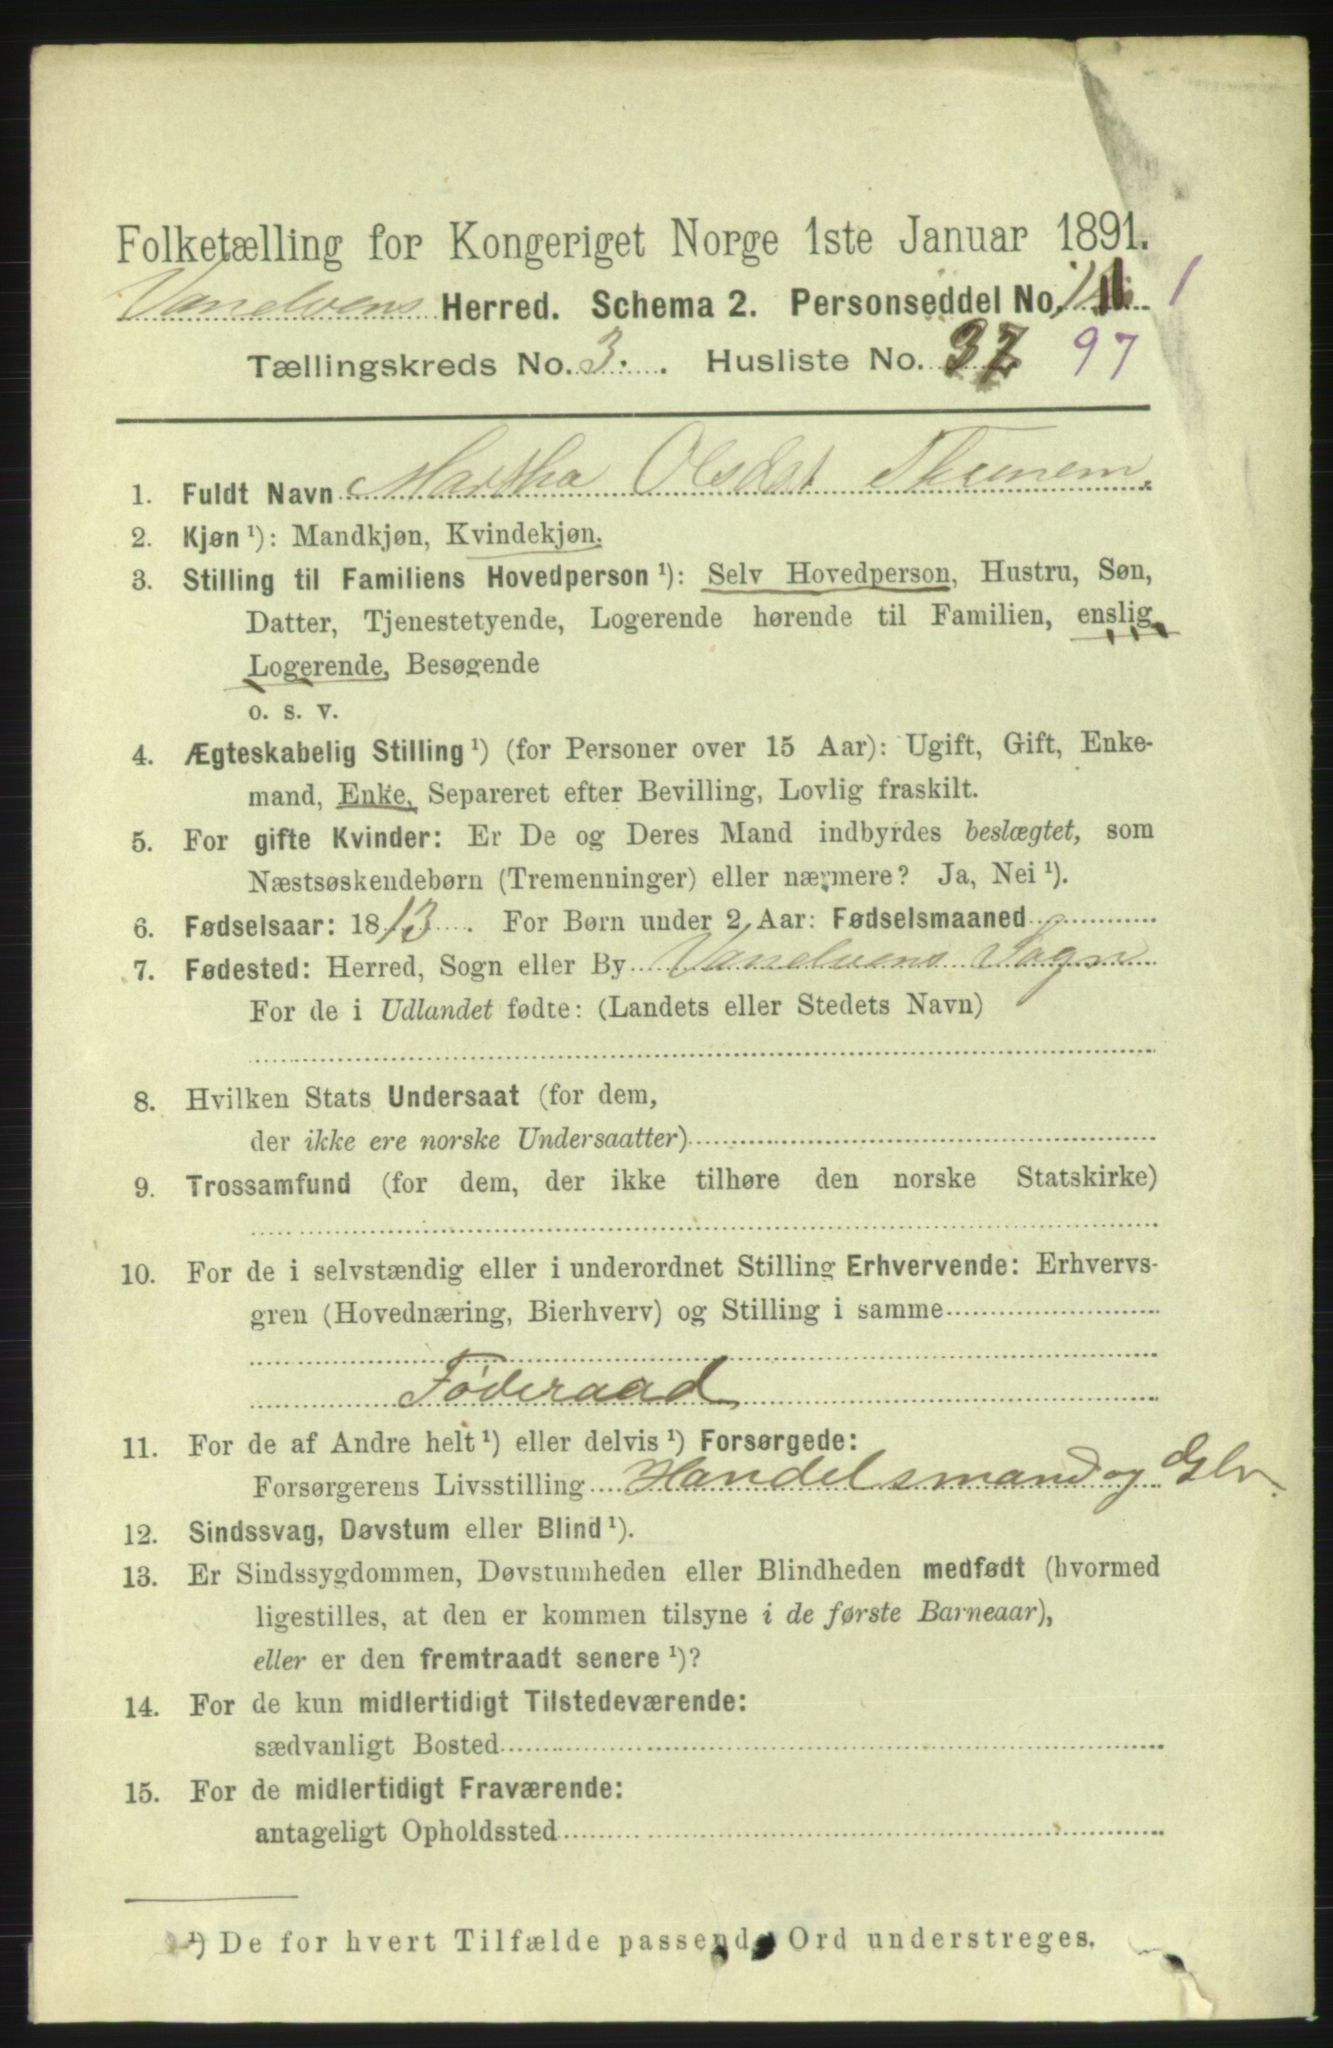 Folketælling for Kongeriget Norge 1ste Januar 1891.
Vanelvens Herred. Schema 2. Personseddel No. 1
Tællingskreds No. 3. Husliste No. 37 97
1. Fuldt Navn Martha Olsdat
2. Kjøn ¹): Mandkjøn, Kvindekjøn.
3. Stilling til Familiens Hovedperson ¹): Selv Hovedperson, Hustru, Søn,
Datter, Tjenestetyende, Logerende hørende til Familien, enslig
Logerende, Besøgende
o. s. v.
4. Ægteskabelig Stilling ¹) (for Personer over 15 Aar): Ugift, Gift, Enke-
mand, Enke, Separeret efter Bevilling, Lovlig fraskilt.
5. For gifte Kvinder: Er De og Deres Mand indbyrdes beslægtet, som
Næstsøskendebørn (Tremenninger) eller nærmere? Ja, Nei ¹).
6. Fødselsaar: 1813. For Børn under 2 Aar: Fødselsmaaned
7. Fødested: Herred, Sogn eller By Vanelvens Sogn
For de i Udlandet fødte: (Landets eller Stedets Navn)
8. Hvilken Stats Undersaat (for dem,
der ikke ere norske Undersaatter)
9. Trossamfund (for dem, der ikke tilhøre den norske Statskirke)
10. For de i selvstændig eller i underordnet Stilling Erhvervende: Erhvervs-
gren (Hovednæring, Bierhverv) og Stilling i samme
Føderaad
11. For de af Andre helt ¹) eller delvis ¹) Forsørgede:
Forsørgerens Livsstilling Handelsmand og Glv.
12. Sindssvag, Døvstum eller Blind ¹).
13. Er Sindssygdommen, Døvstumheden eller Blindheden medfødt (hvormed
ligestilles, at den er kommen tilsyne i de første Barneaar),
eller er den fremtraadt senere ¹)?
14. For de kun midlertidigt Tilstedeværende:
sædvanligt Bosted
15. For de midlertidigt Fraværende:
antageligt Opholdssted
¹) De for hvert Tilfælde passende Ord understreges.